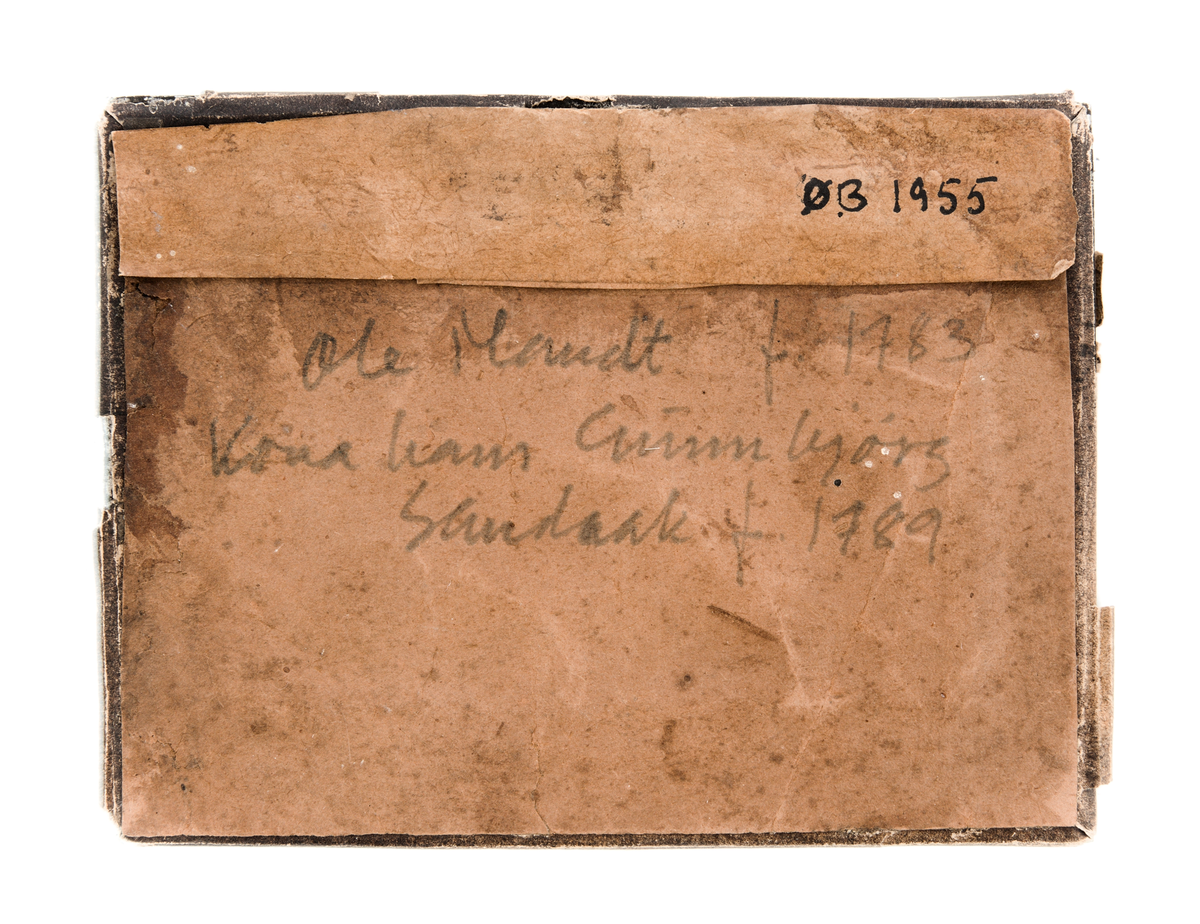 ØB 1955
Ole Mandt f. 1783
Kona hans Gunnbjørg
Sandaak f. 1789